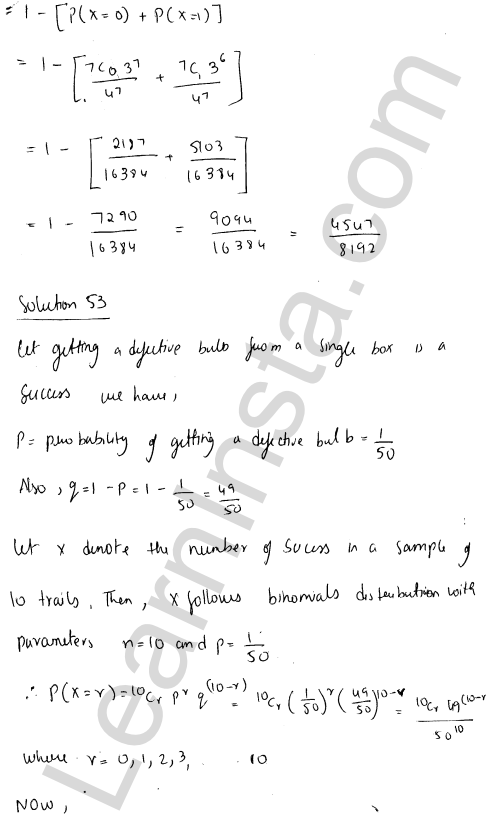 = 1 - [P(x=0) + P(x=1)]
= 1 - [7C0 3^7 / 4^7 + 7C1 3^6 / 4^7]
= 1 - [2187/16384 + 5103/16384]
= 1 - 7290/16384 = 9094/16384 = 4547/8192
Solution 53
Let getting a defective bulb from a single box is a
Success we have,
P = probability of getting a defective bulb = 1/50
Also, q = 1 - P = 1 - 1/50 = 49/50
Let x denote the number of Sucess in a sample of
10 trails. Then, x follows binomials distribution with
parameters n=10 and p = 1/50
∴ P(x=r) = 10Cr p^r q^(10-r) = 10Cr (1/50)^r (49/50)^10-r = 10Cr 49^(10-r / 50^10
where r = 0, 1, 2, 3, 10
NOW,
LearnInsta.com